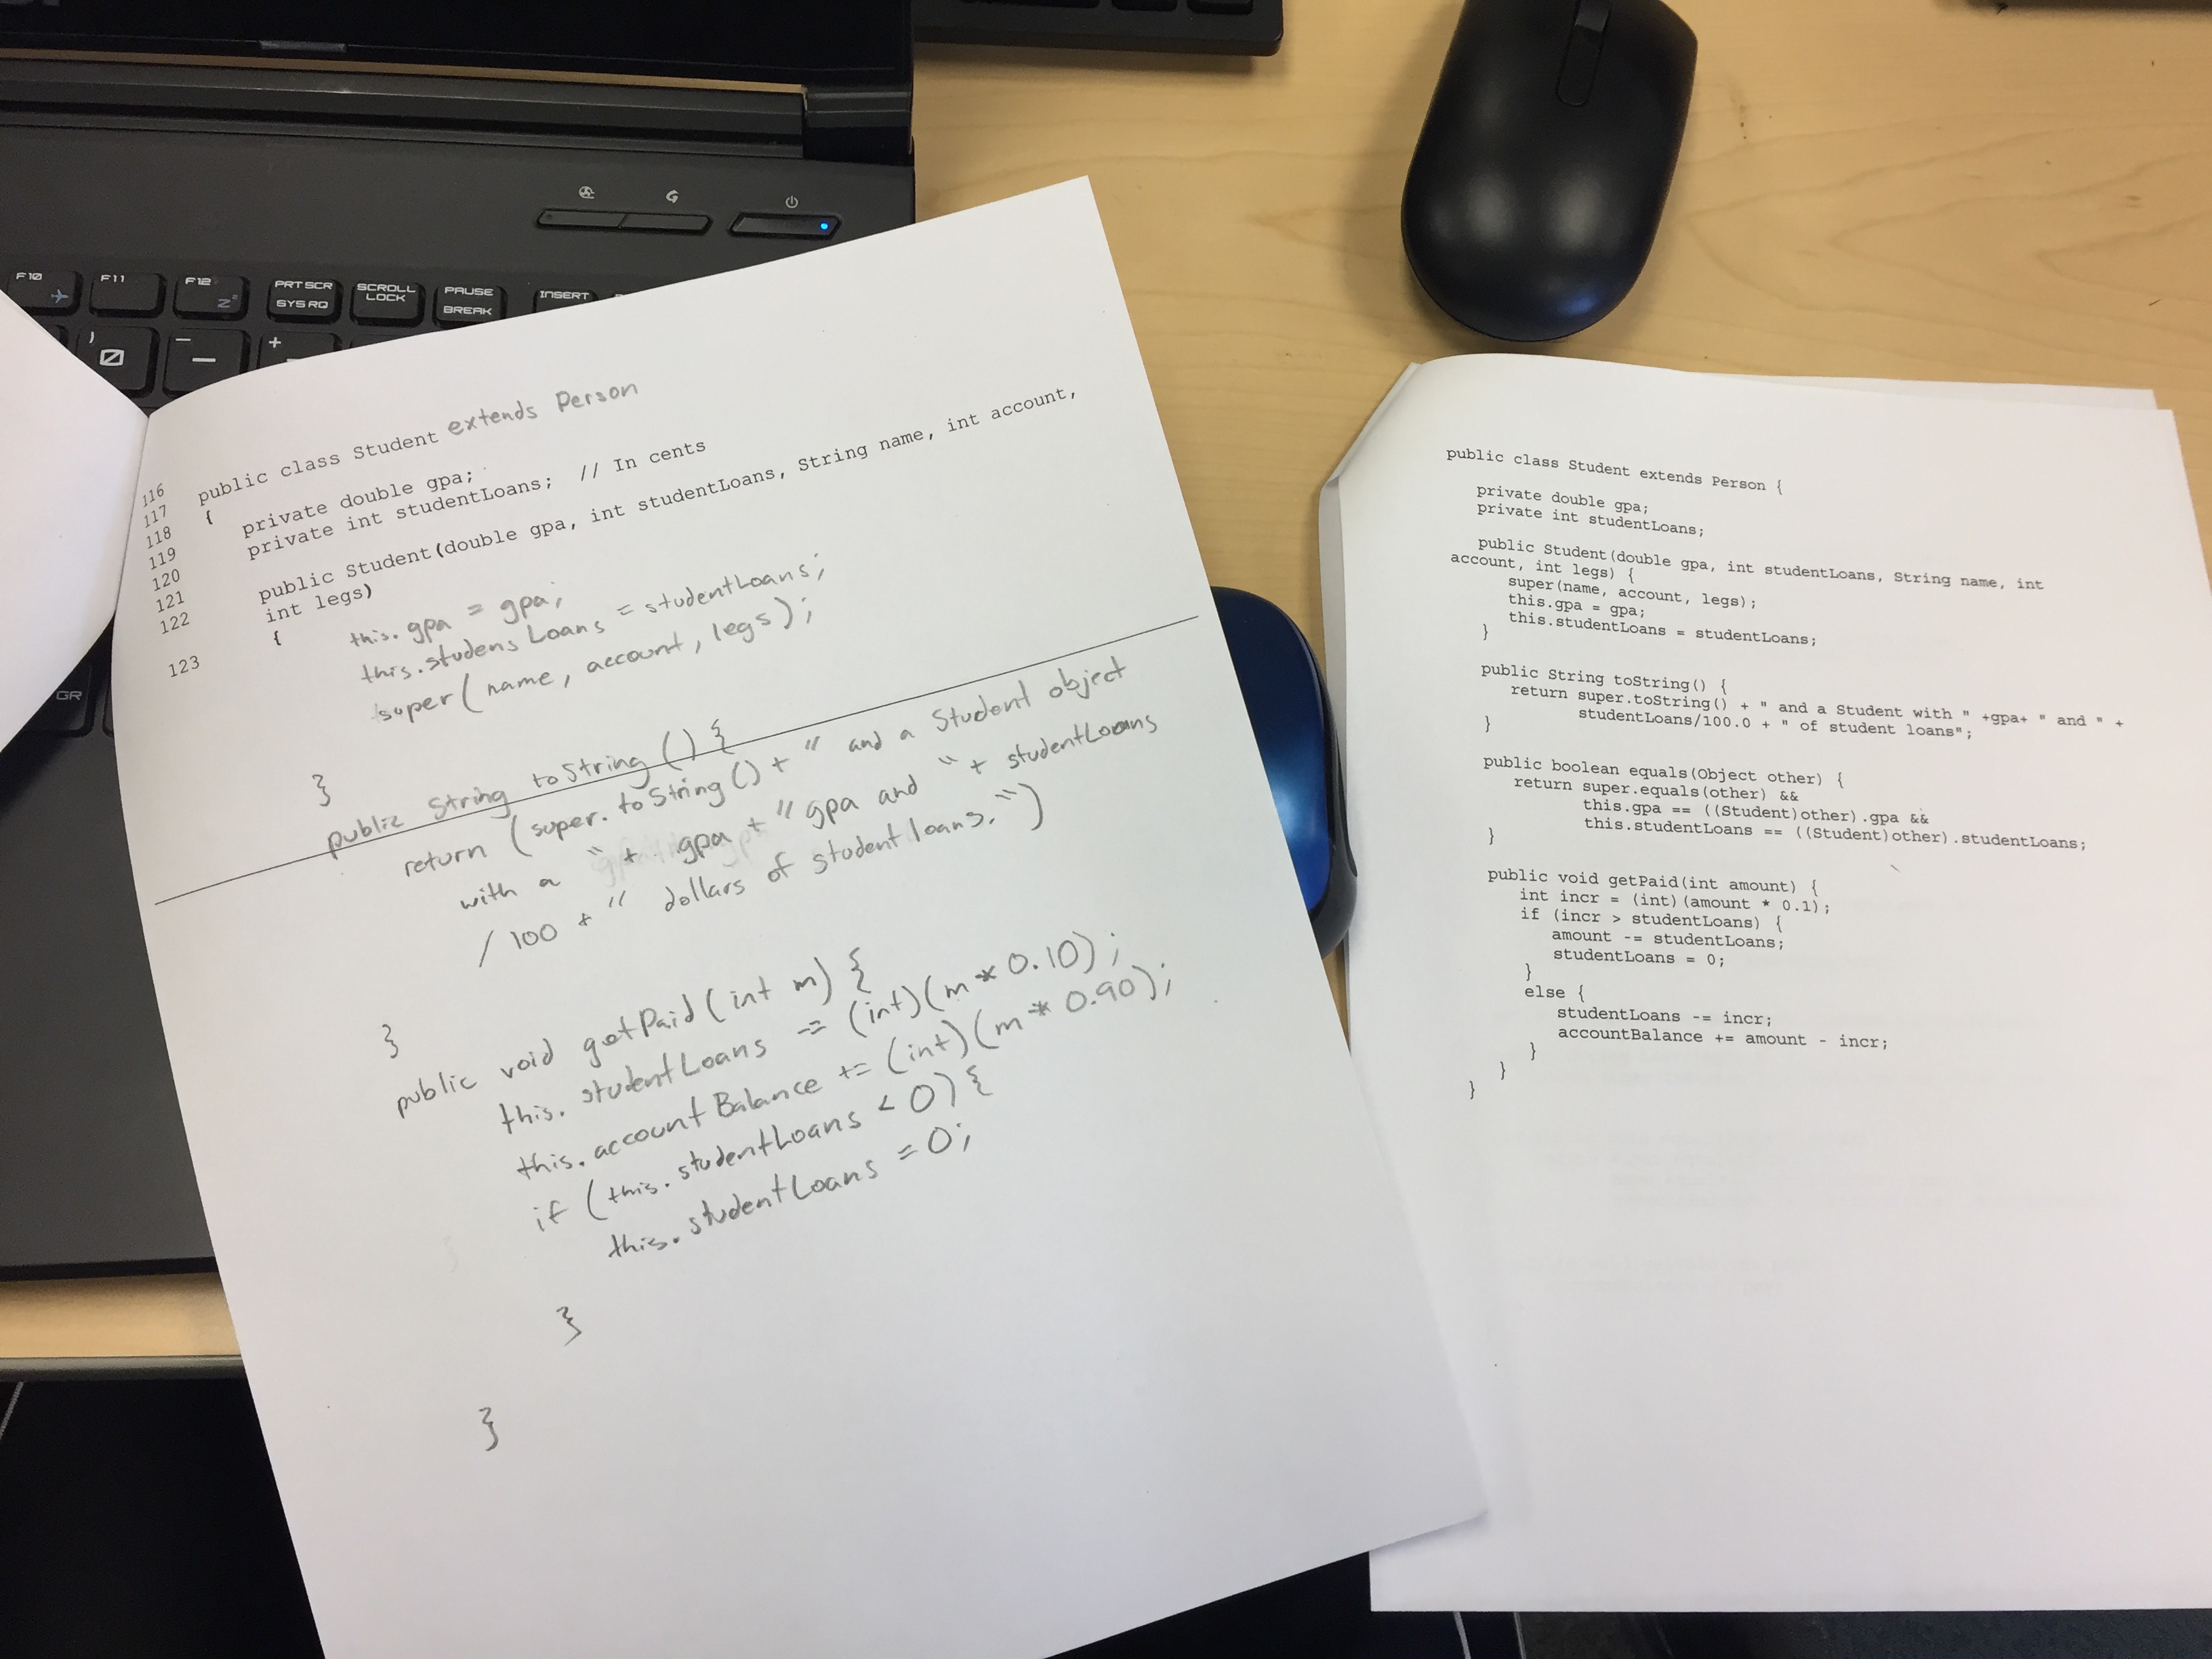 F10
F11
F12
PRTSCR
SYS RQ
SCROLL
LOCK
PAUSE
BREAK
INSERT
)
0
GR
116
117
118
119
120
121
122
123
public class Student extends Person
{
private double gpa;
private int studentLoans; // In cents
public Student(double gpa, int studentLoans, String name, int account,
int legs)
{
this.gpa = gpa;
this.studensLoans = studentLoans;
super(name, account, legs);
}
public String toString() {
return (super.toString() + " and a Student object
with a " + gpa + " gpa and " + studentLoans
/100 + " dollars of student loans.")
}
public void getPaid(int m) {
this.studentLoans -= (int)(m * 0.10);
this.accountBalance += (int)(m * 0.90);
if (this.studentLoans < 0) {
this.studentLoans = 0;
}
}
public class Student extends Person {
private double gpa;
private int studentLoans;
public Student(double gpa, int studentLoans, String name, int
account, int legs) {
super(name, account, legs);
this.gpa = gpa;
this.studentLoans = studentLoans;
}
public String toString() {
return super.toString() + " and a Student with " +gpa+ " and " +
studentLoans/100.0 + " of student loans";
}
public boolean equals(Object other) {
return super.equals(other) &&
this.gpa == ((Student)other).gpa &&
this.studentLoans == ((Student)other).studentLoans;
}
public void getPaid(int amount) {
int incr = (int)(amount * 0.1);
if (incr > studentLoans) {
amount -= studentLoans;
studentLoans = 0;
}
else {
studentLoans -= incr;
accountBalance += amount - incr;
}
}
}